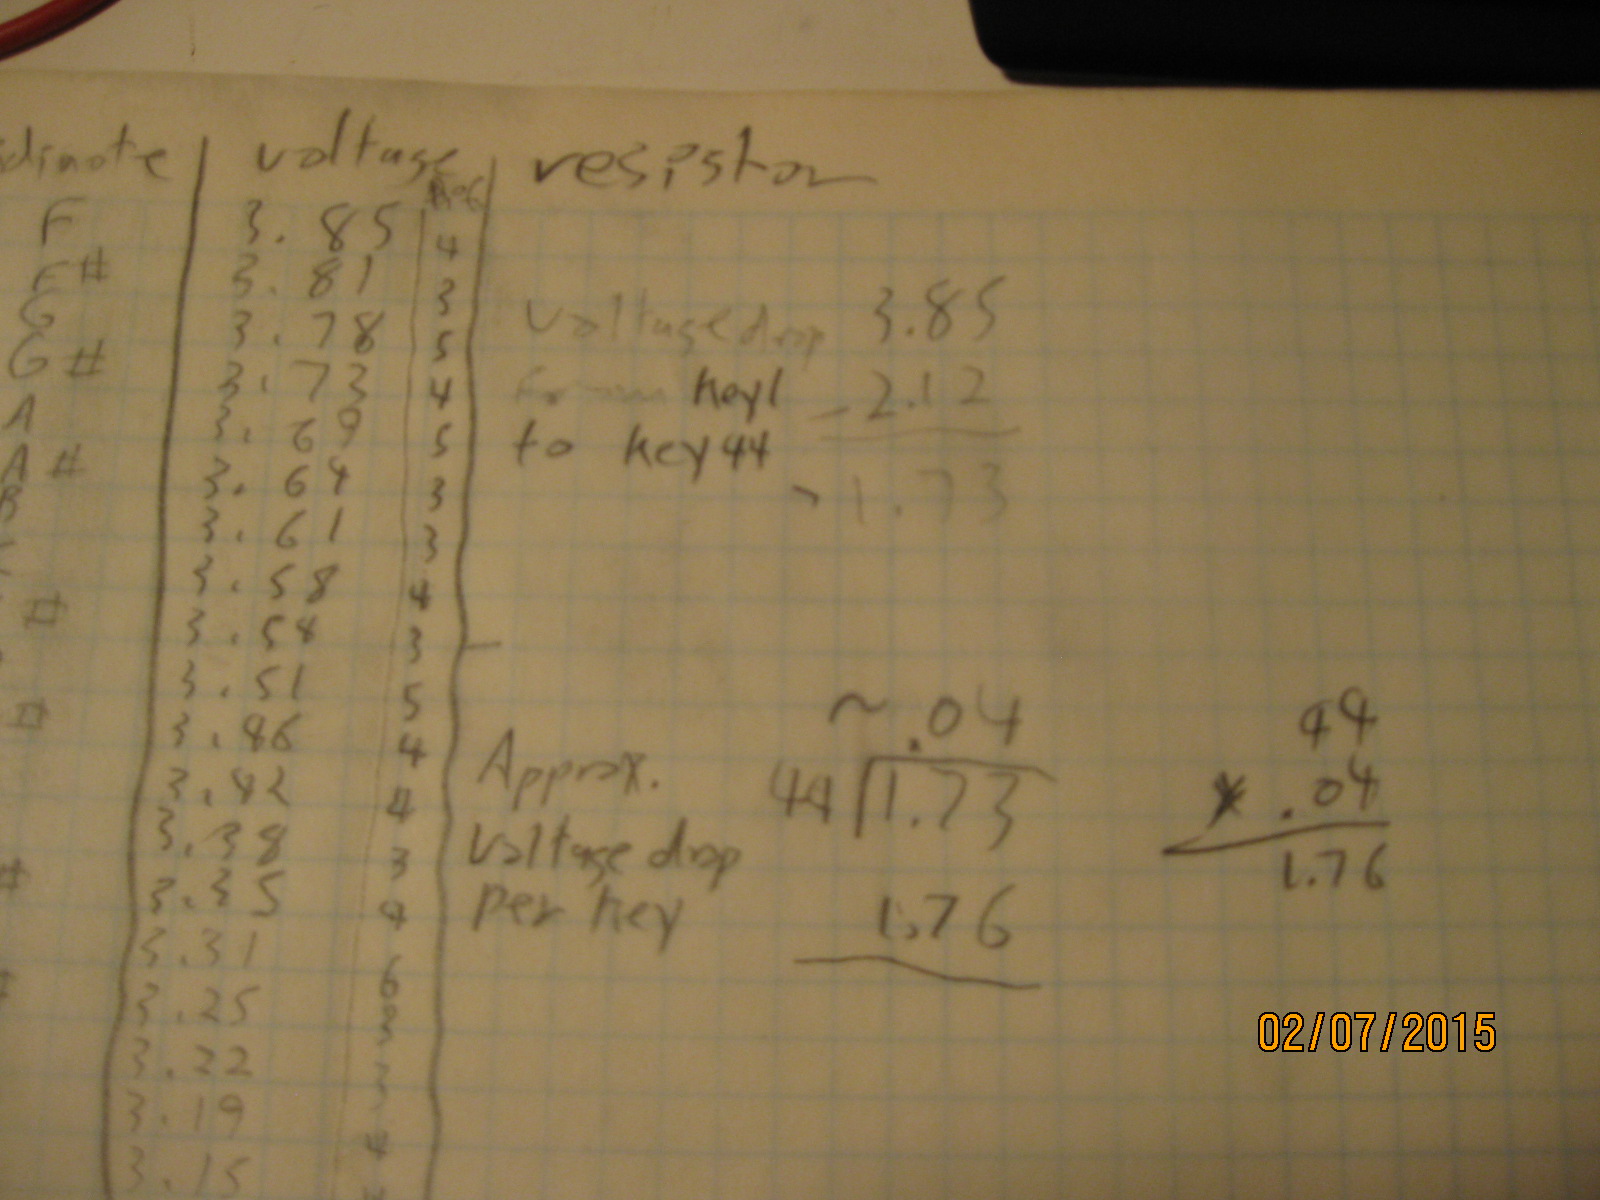 dinote voltage resistor
F 3.85 4
F# 3.81 3
G 3.78 5
G# 3.73 4
A 3.69 5
A# 3.64 3
B 3.61 3
3.58 4
# 3.54 3
3.51 5
# 3.46 4
3.42 4
3.38 3
# 3.35 4
3.31 6
# 3.25 3
3.22 3
3.19 4
3.15
voltage drop 3.85
from key1 - 2.12
to key44 1.73
~ .04
Approx. 44 1.73
voltage drop
per key 1.76
44
x .04
1.76
02/07/2015